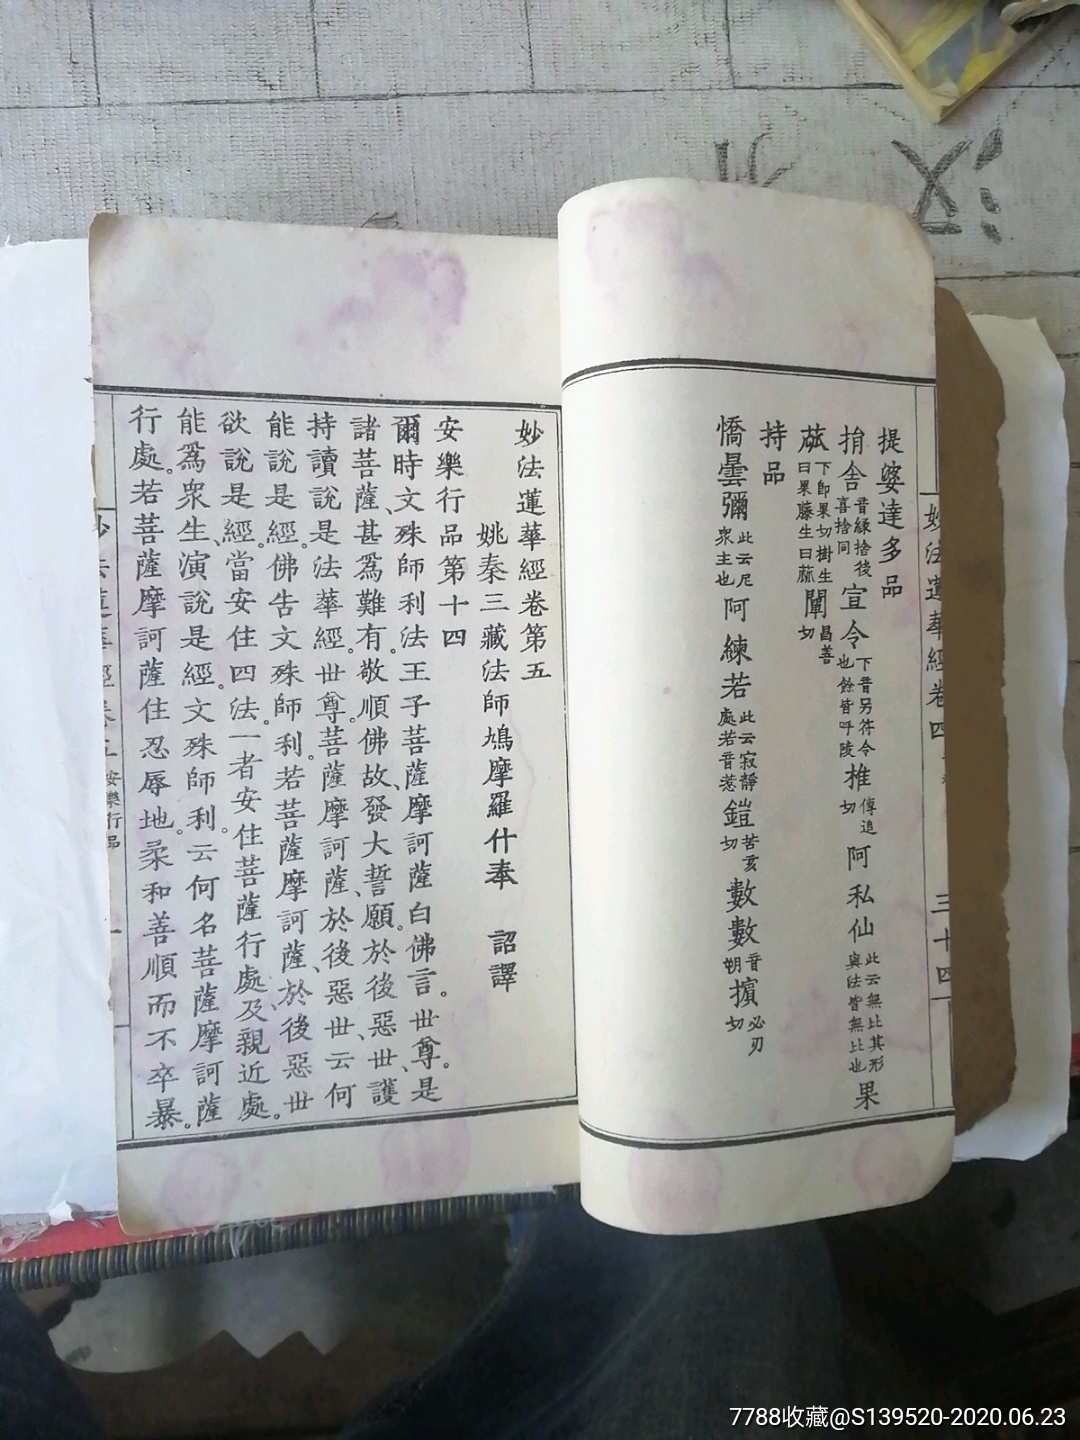 妙法蓮華經卷四
三十四
提婆達多品
捎舍音緣捨後喜捨同宣令下音另符令也餘皆呼陵推傳追切阿私仙此云無比其形與法皆無比也果
蓏下郎果切樹生曰果藤生曰蓏闡昌善切
持品
憍曇彌此云尼衆主也阿練若此云寂靜處若音惹鎧苦亥切數數音朔擯必刃切
妙法蓮華經卷第五
姚秦三藏法師鳩摩羅什奉 詔譯
安樂行品第十四
爾時文殊師利法王子菩薩摩訶薩白佛言。世尊。是
諸菩薩、甚爲難有。敬順佛故、發大誓願。於後惡世、護
持讀說是法華經。世尊。菩薩摩訶薩、於後惡世、云何
能說是經。佛告文殊師利。若菩薩摩訶薩、於後惡世
欲說是經、當安住四法。一者安住菩薩行處、及親近處。
能爲衆生、演說是經。文殊師利。云何名菩薩摩訶薩
行處。若菩薩摩訶薩住忍辱地。柔和善順而不卒暴。
妙法蓮華經卷五 安樂行品 一
7788收藏@S139520-2020.06.23